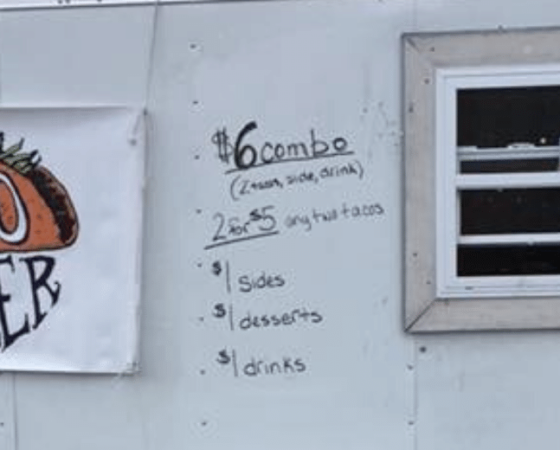 $6 combo
(2 tacos, side, drink)
2 for $5 any two tacos
$1 sides
$1 desserts
$1 drinks
O
ER